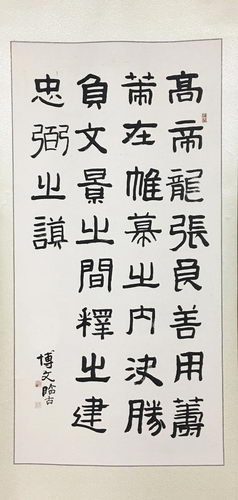 高帝龍張良善用籌
策在帷幕之内決勝
負文景之間釋之建
忠弼之謨
博文臨古